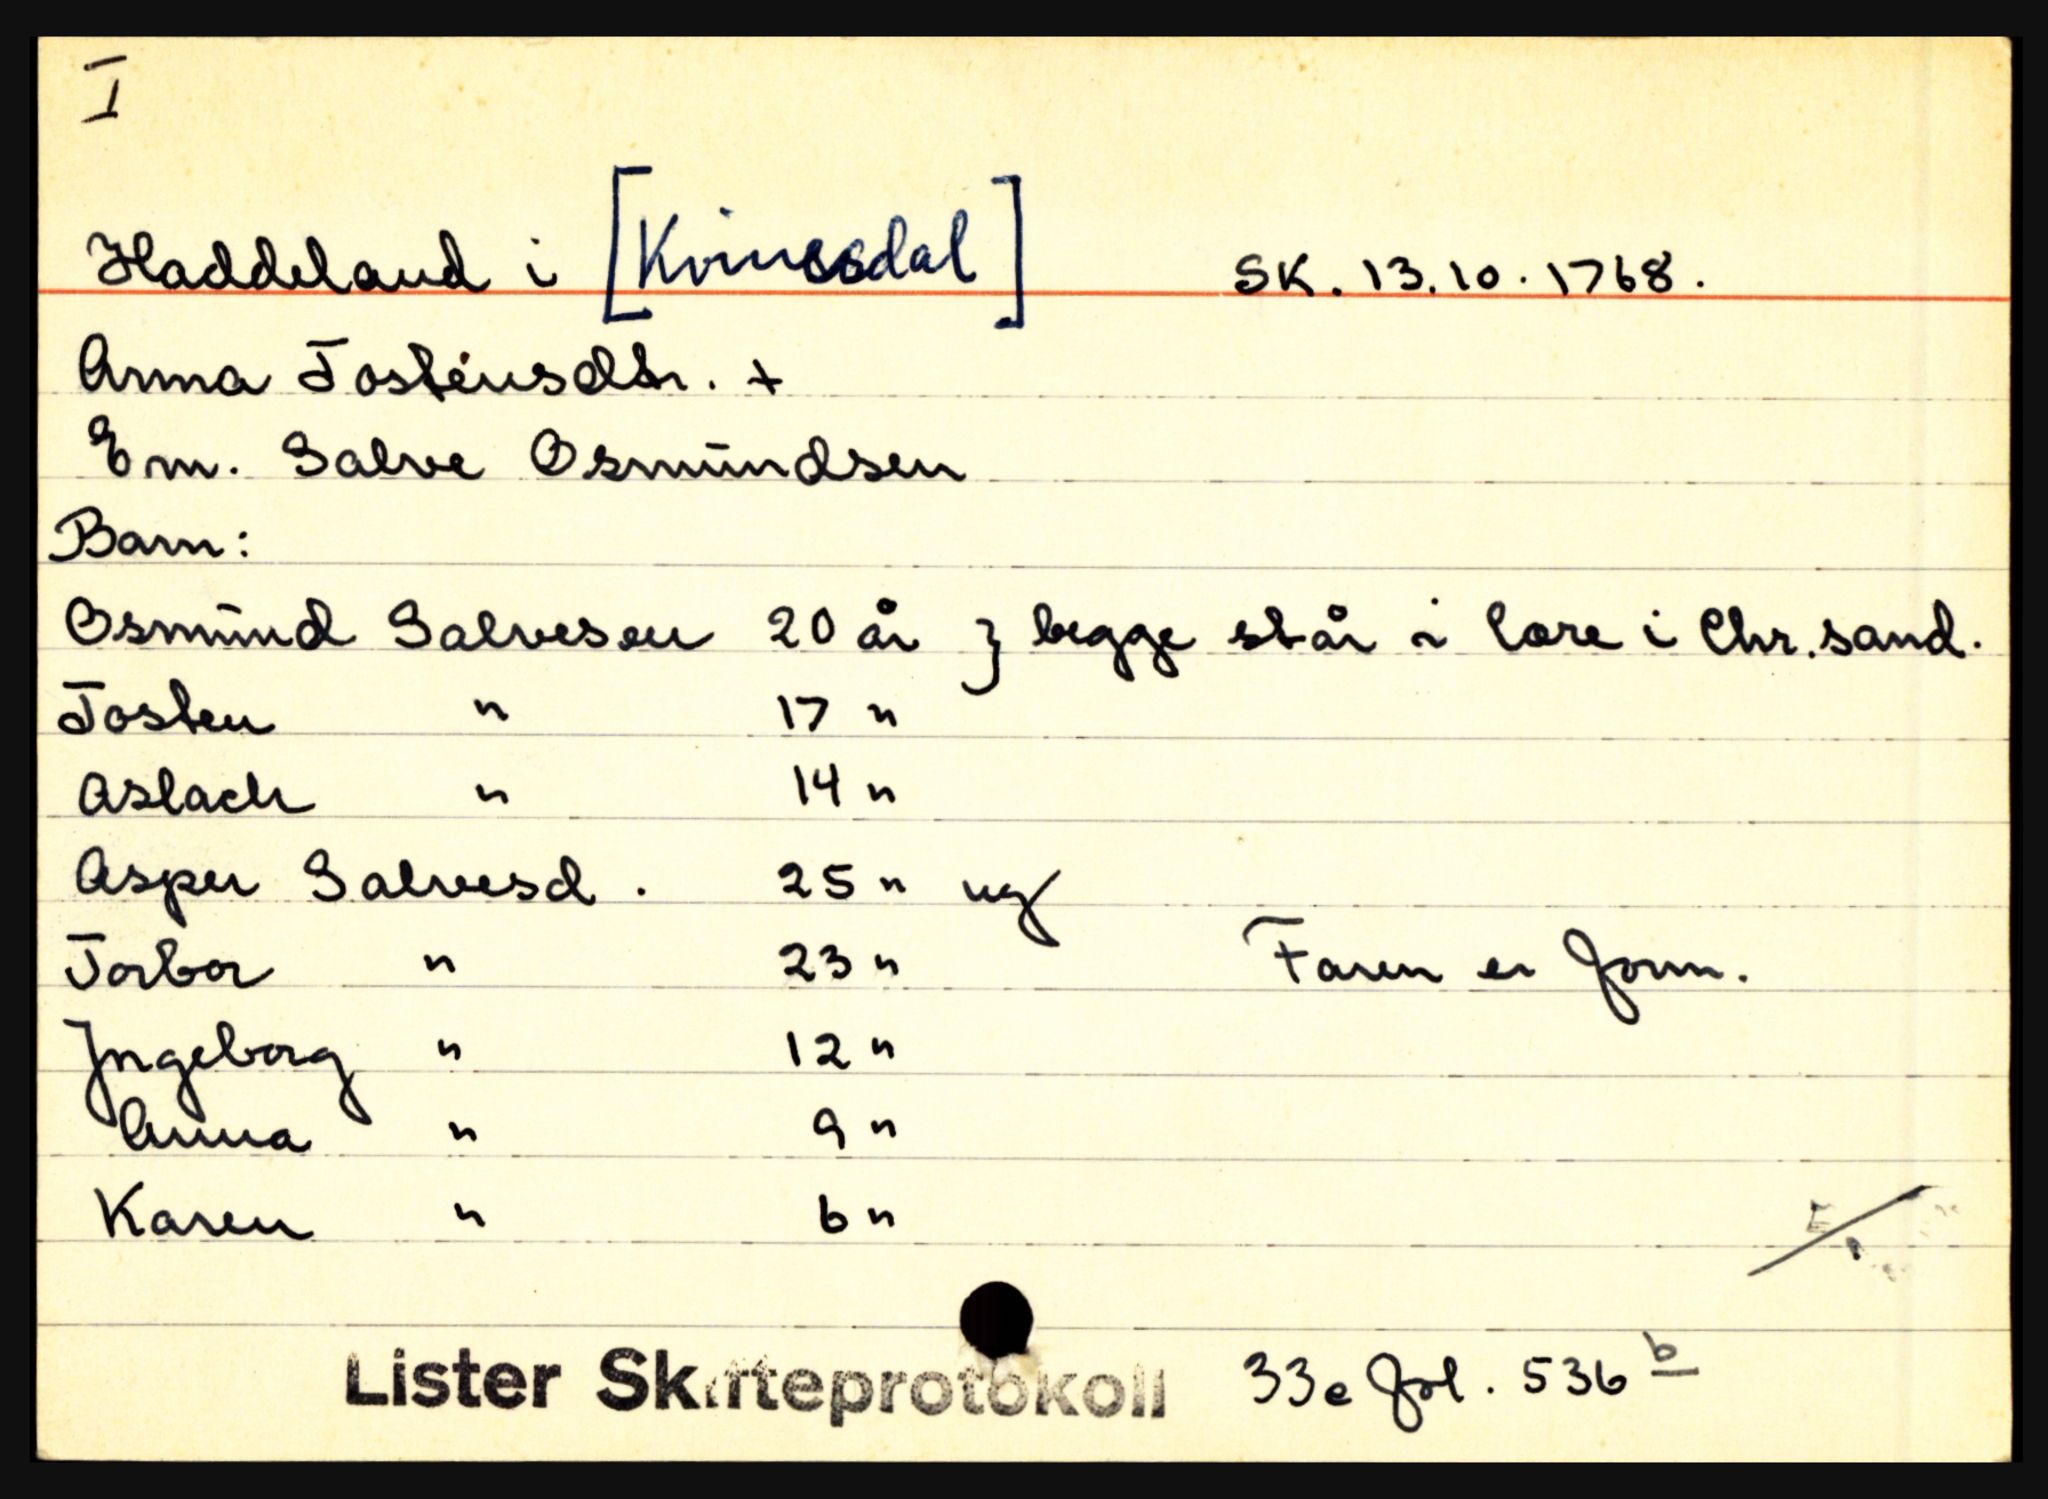 I
Haddeland i [Kvinesdal] SK. 13.10.1768.
Anna Tostensdtr. +
Em. Salve Osmundsen
Barn:
Osmund Salvesen 20 år } begge står i lære i Chr.sand.
Tosten " 17 "
Aslach " 14 "
Asper Salvesd. 25 " ug
Torbor " 23 " Faren er form.
Ingeborg " 12 "
Anna " 9 "
Karen " 6 "
Lister Skifteprotokoll 33e fol. 536 b